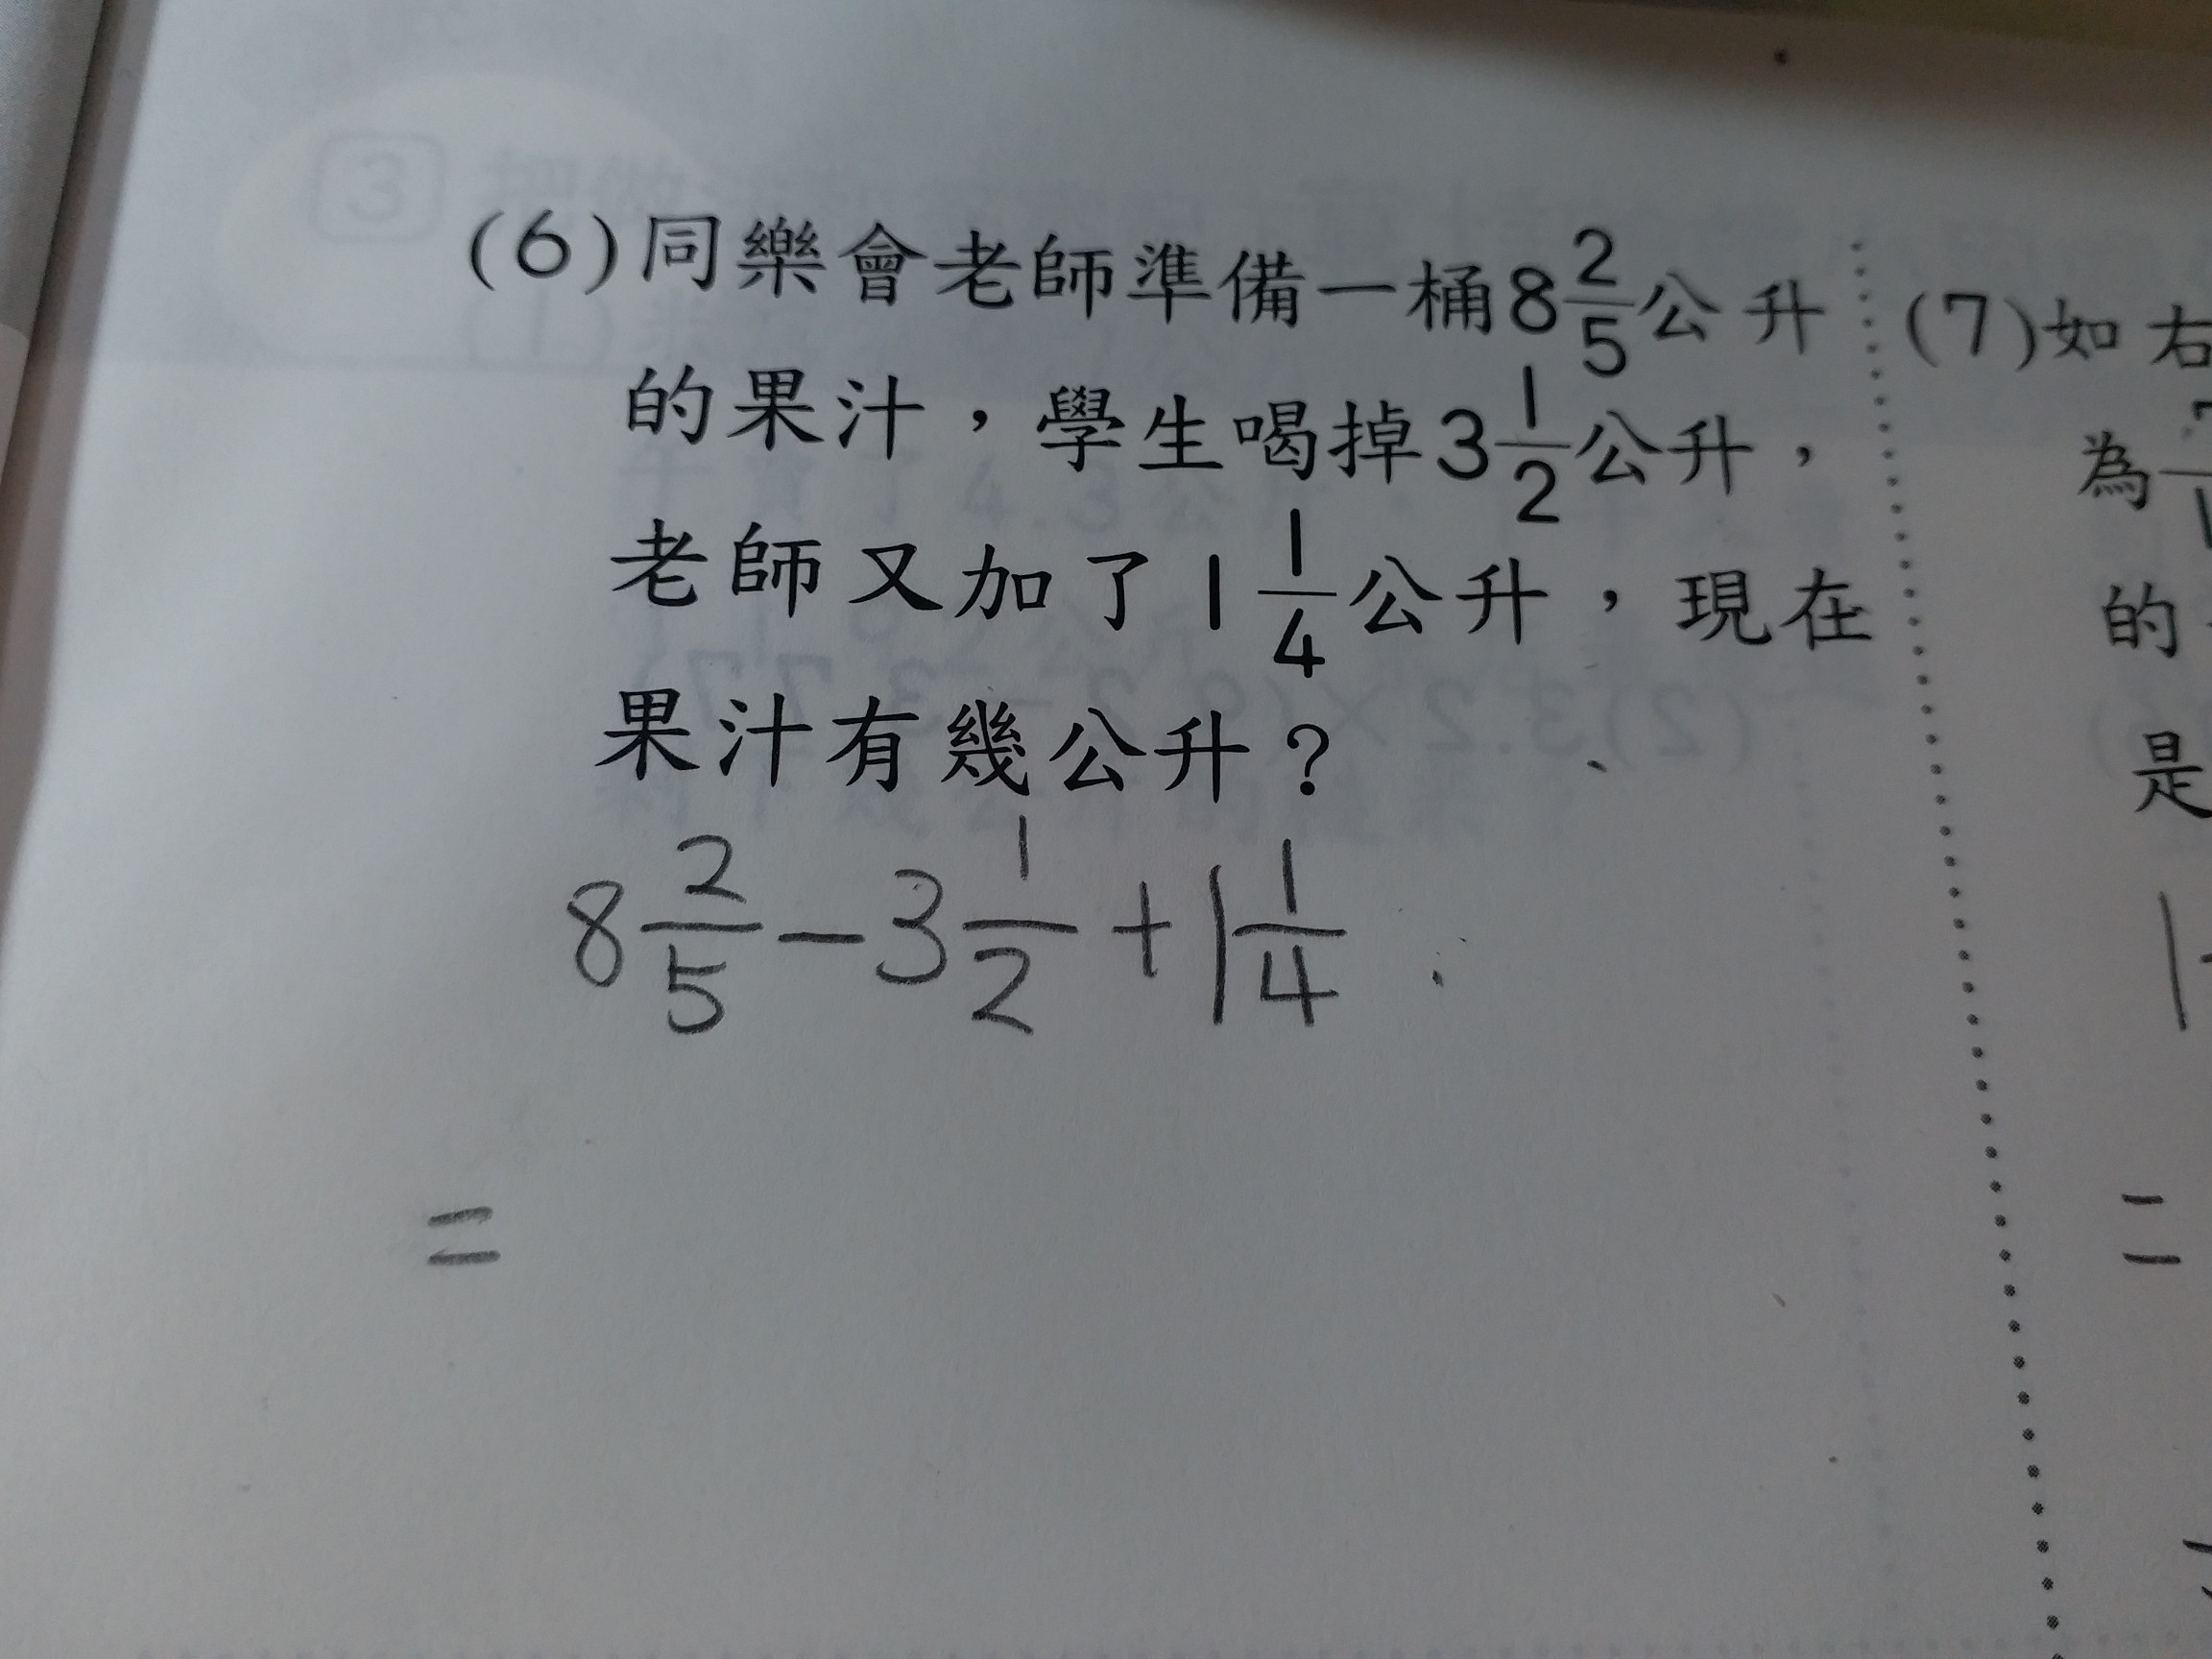 (6)同樂會老師準備一桶8 2/5公升
的果汁，學生喝掉3 1/2公升，
老師又加了1 1/4公升，現在
果汁有幾公升？
8 2/5 - 3 1/2 + 1 1/4
=
(7)如右
為
的
是
=